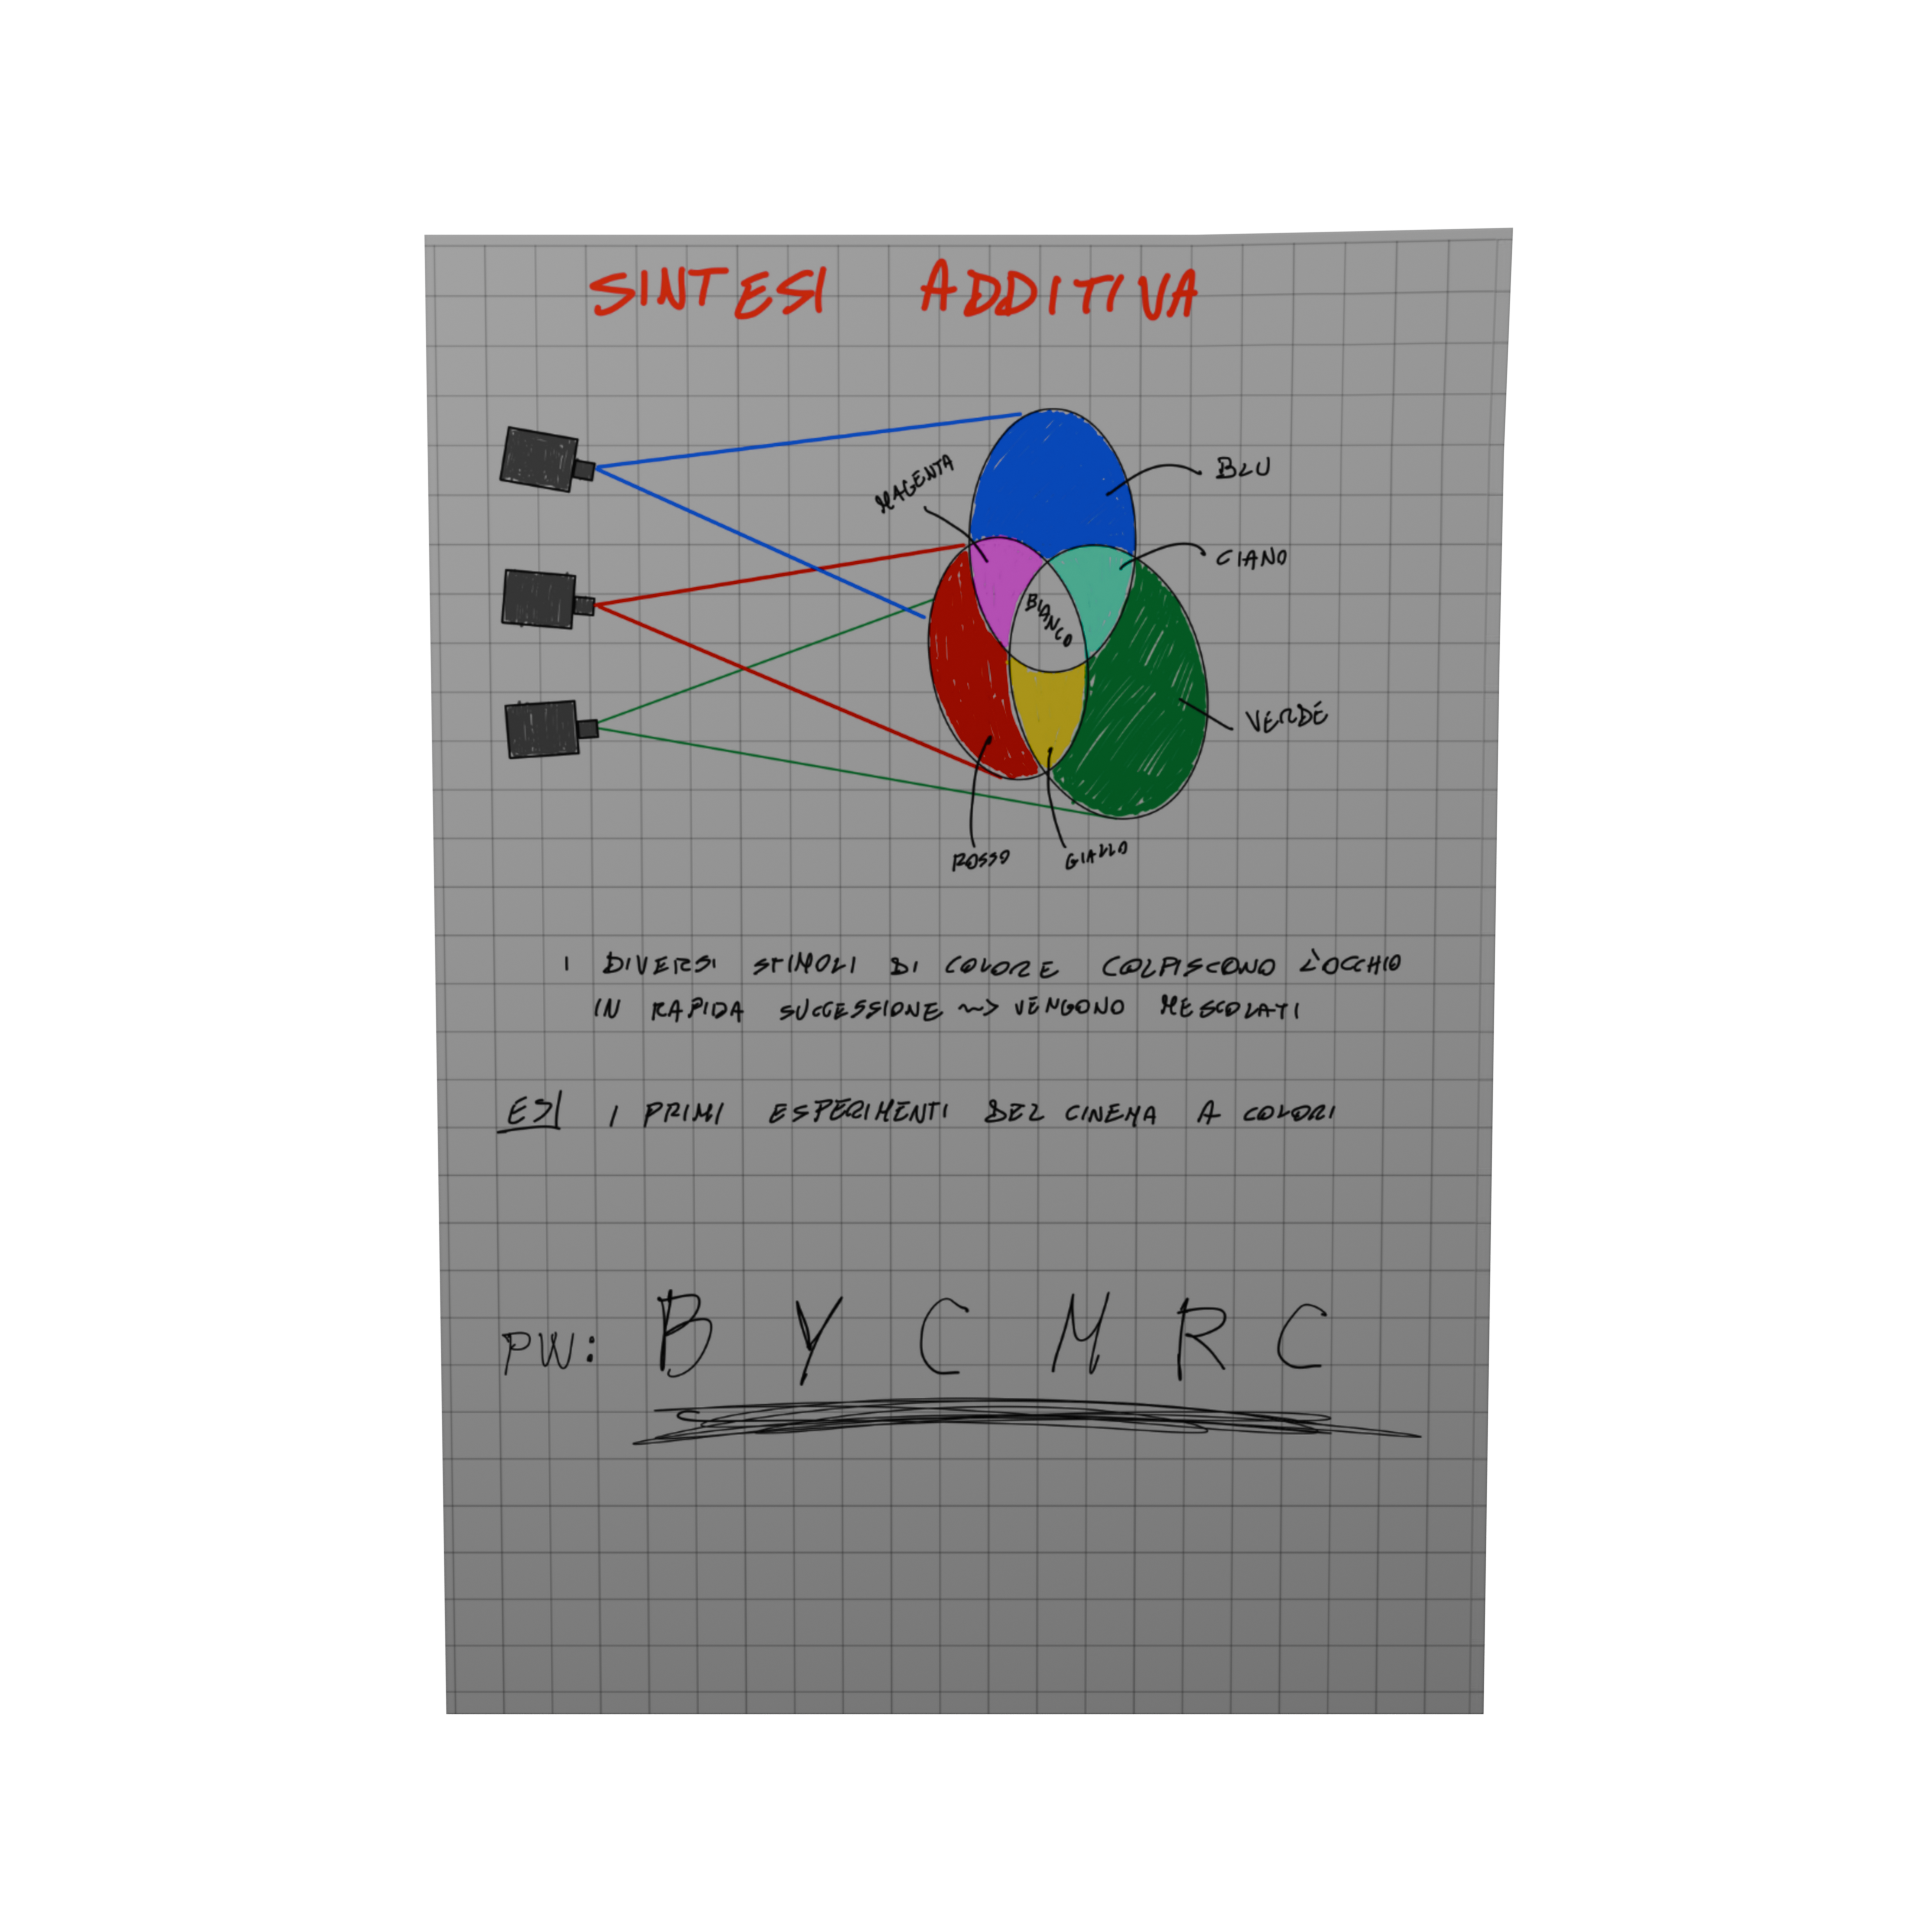 SINTESI ADDITIVA
MAGENTA
BLU
CIANO
BIANCO
VERDE
ROSSO
GIALLO
I DIVERSI STIMOLI DI COLORE COLPISCONO L'OCCHIO
IN RAPIDA SUCCESSIONE ~> VENGONO MESCOLATI
ES| I PRIMI ESPERIMENTI DEL CINEMA A COLORI
PW: B Y C M R C